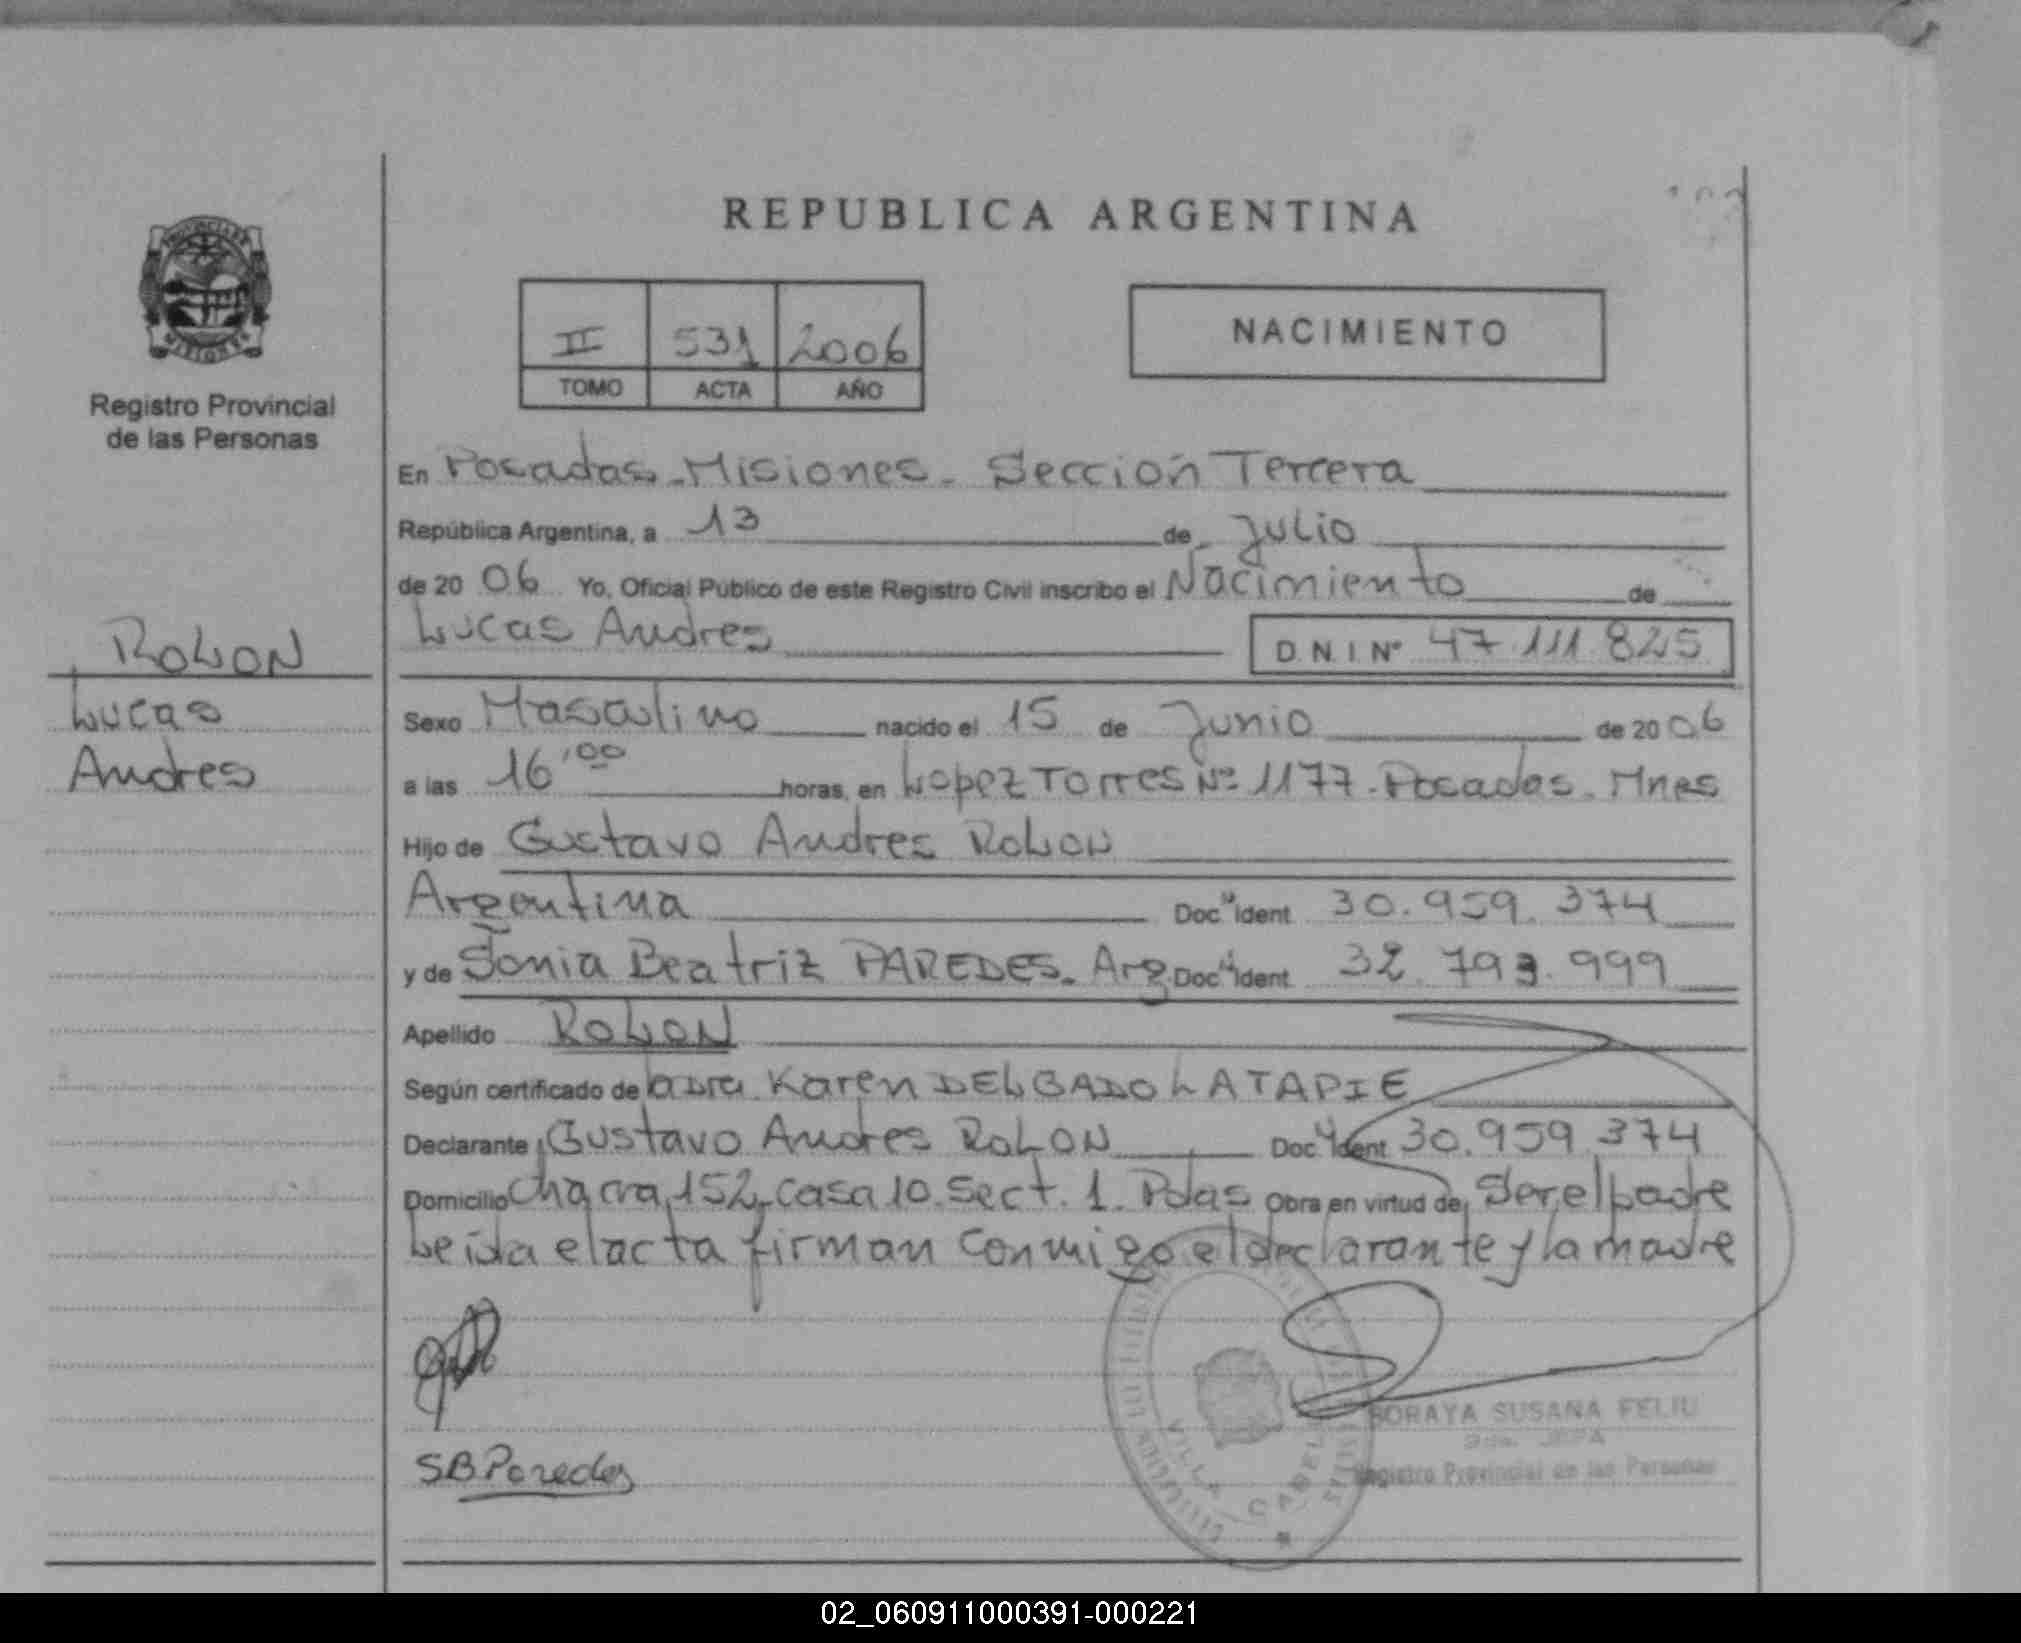 REPUBLICA ARGENTINA
II 531 2006
TOMO ACTA AÑO
NACIMIENTO
Registro Provincial
de las Personas
ROLON
Lucas
Andres
En Posadas - Misiones - Sección Tercera
República Argentina, a 13 de Julio
de 20 06 Yo, Oficial Público de este Registro Civil inscribo el Nacimiento de
Lucas Andres D.N.I. Nº 47.111.825
Sexo Masculino nacido el 15 de Junio de 20 06
a las 16,00 horas, en Lopez Torres Nº 1177 - Posadas - Mnes
Hijo de Gustavo Andres ROLON
Argentina Doc. Ident 30.959.374
y de Sonia Beatriz PAREDES - Arg Doc. Ident 32.793.999
Apellido ROLON
Según certificado de la Dra. Karen DELGADO LATAPIE
Declarante Gustavo Andres ROLON Doc. Ident 30.959.374
Domicilio Chacra 152 - Casa 10. Sect. 1. Pdas Obra en virtud de Ser el padre
Leida el acta firman conmigo el declarante y la madre
SBParedes
VILLA CABELLO
SORAYA SUSANA FELIU
Registro Provincial de las Personas
02_060911000391-000221